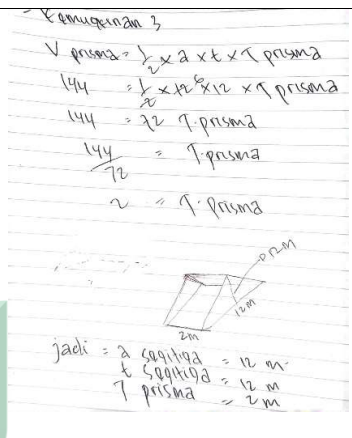 - Kemungkinan 3
V prisma = 1/2 x a x t x T prisma
144 = 1/2 x 12 6 x 12 x T prisma
144 = 72 T. prisma
144/72 = T. prisma
2 = T. Prisma
12 m
12 m
2m
jadi = a segitiga = 12 m.
t segitiga = 12 m
T prisma = 2 m